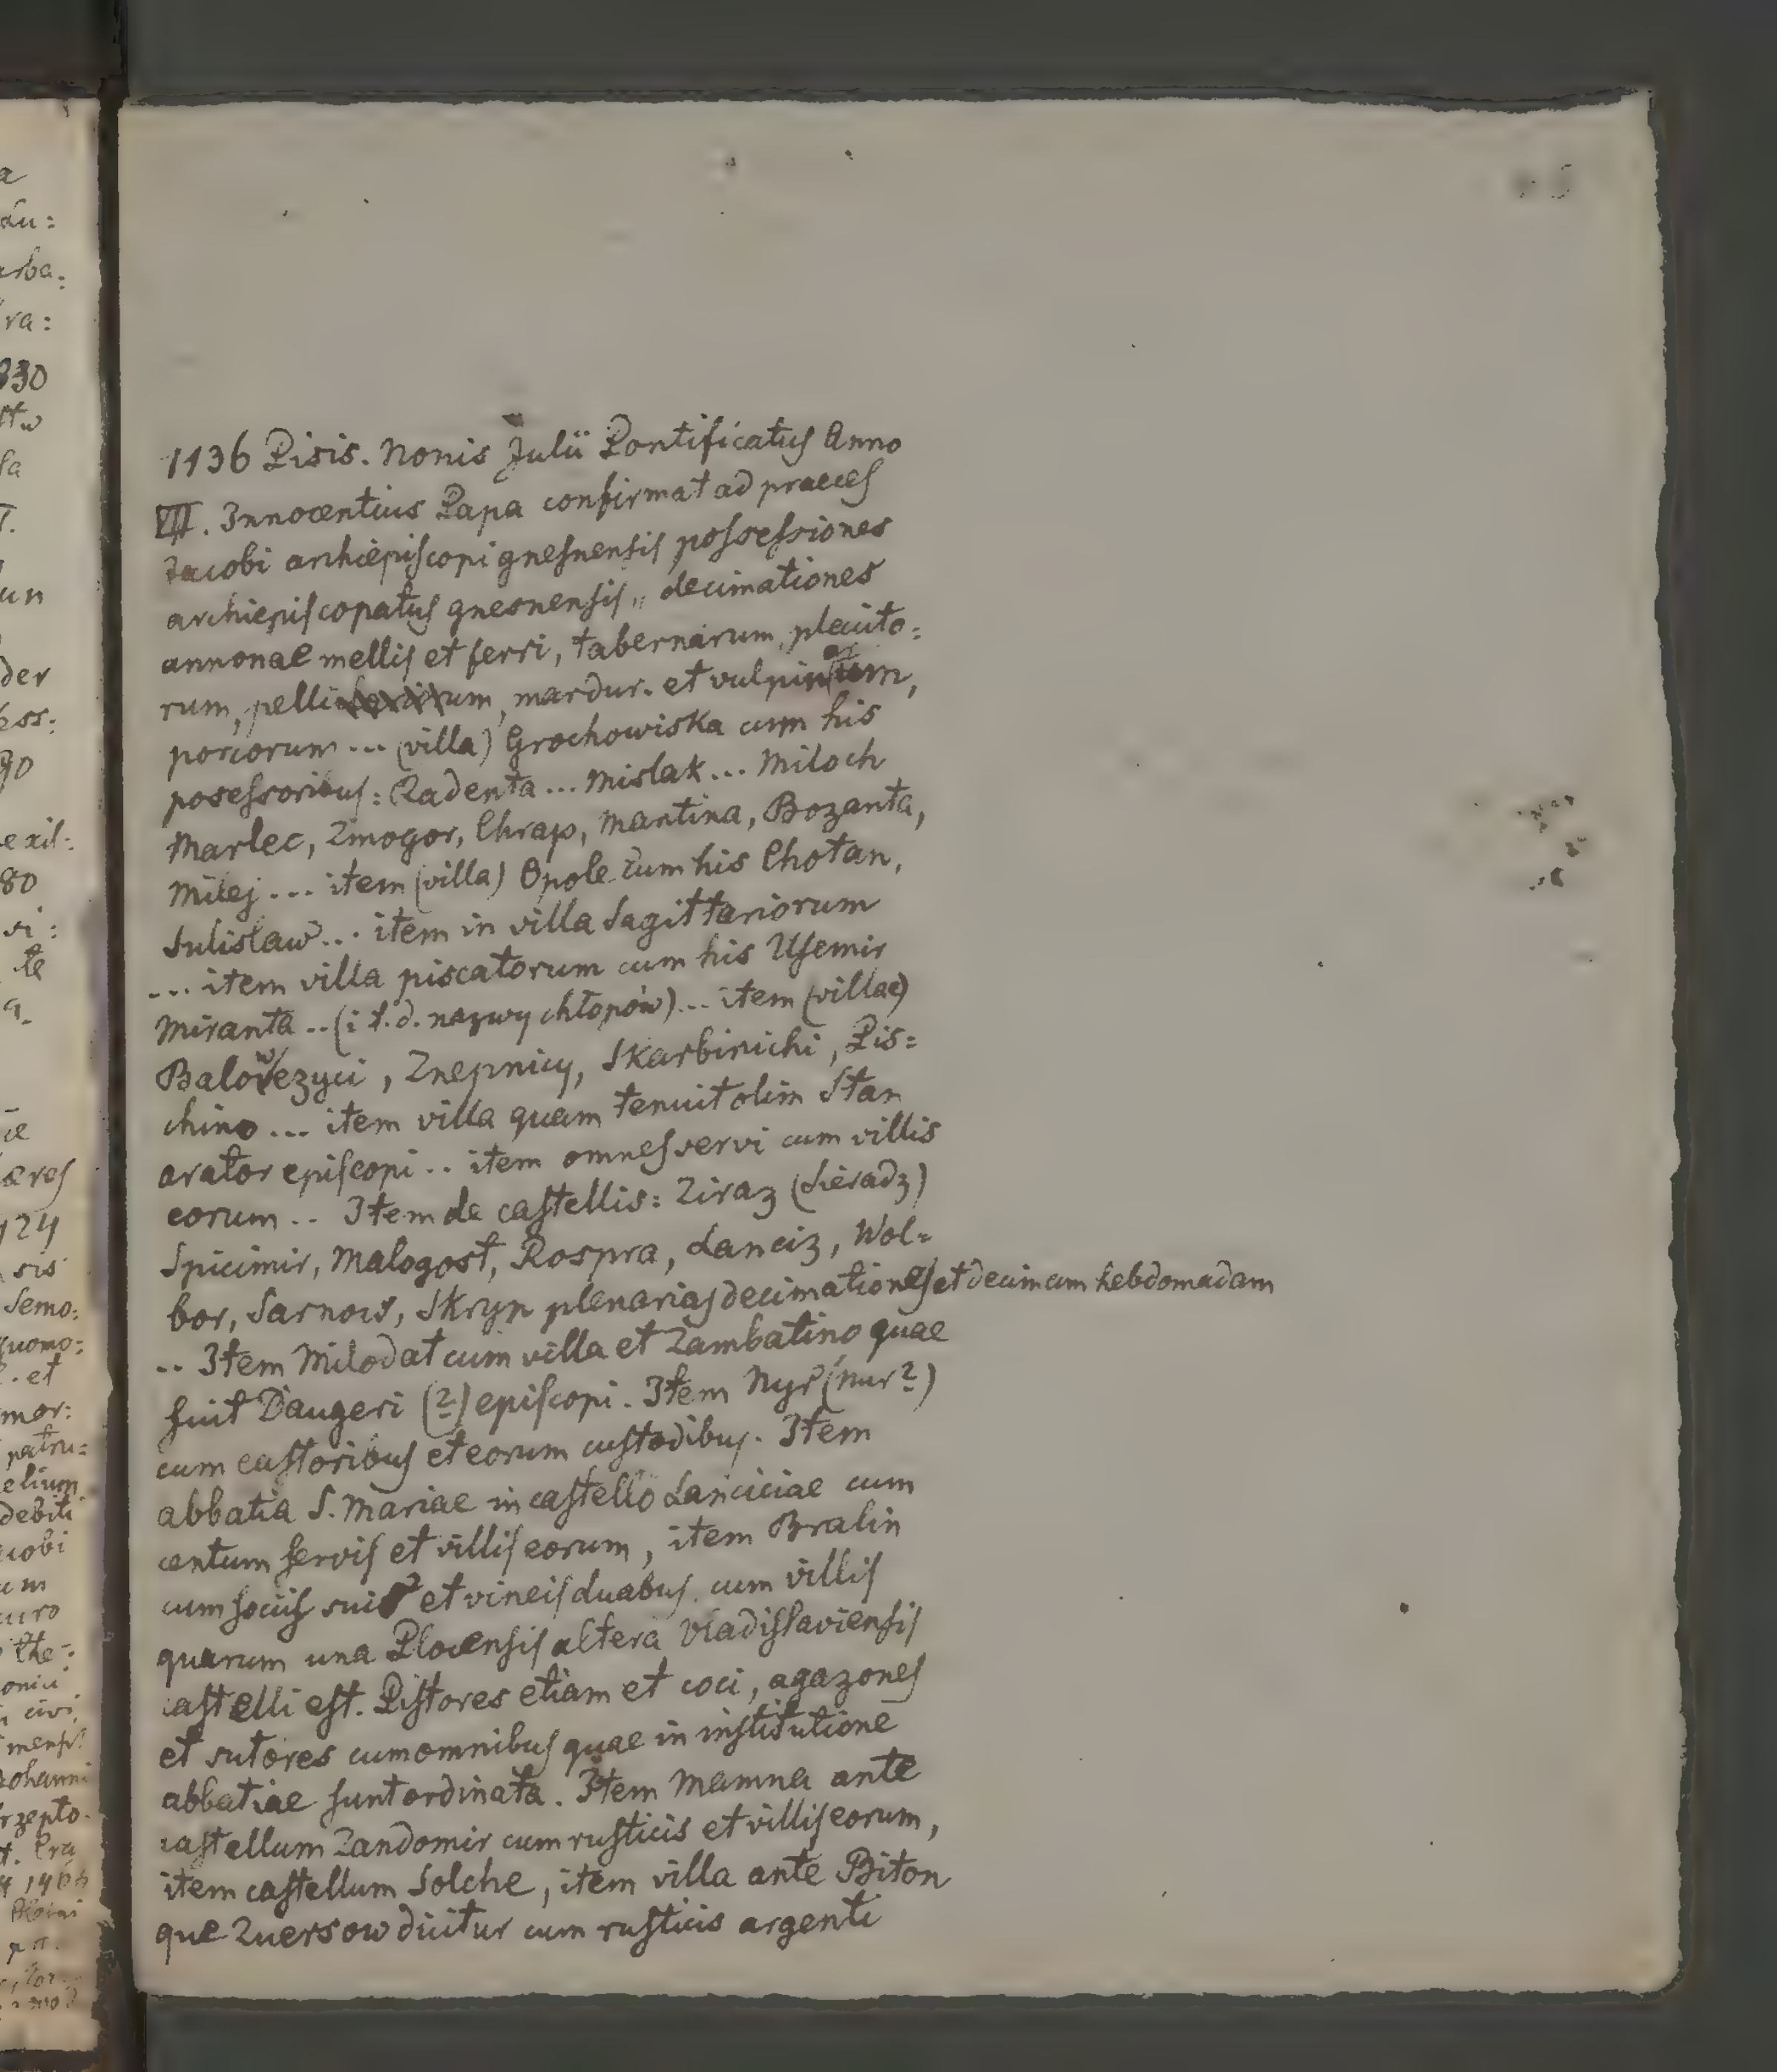 1136 Pisis. Nonis Julii Pontificatus Anno
VII. Innocentius Papa confirmat ad praeces
Jacobi archiepiscopi gnesnensis possessiones
archiepiscopatus gnesnensis,, decimationes
annonae mellis et ferri, tabernarum, placito=
rum, pellium, mardur. et vulpinar,
porcorum ... (villa) Grochowiska cum his
posessoribus: Radenta ... Mislak ... Miloch
Marlec, Zmogor, Chrap, Mantina, Bozanta,
Milej ... item (villa) Opole cum his Chotan,
Sulislaw ... item in villa Sagittariorum
... item villa piscatorum cum his Usemir
Miranta .. (i t.d. nazwy chłopów) ... item (villae)
Balowezyci, Znepnicy, Skarbinichi, Pis=
chino ... item villa quam tenuit olim Stan
arator episcopi .. item omnes servi cum villis
eorum .. Item de castellis: Ziraz (Sieradz)
Spicimir, Malogost, Rospra, Lanciz, Wol=
bor, Sarnow, Skryn plenarias decimationes et decimam hebdomadam
.. Item Milodat cum villa et Zambatino quae
fuit Daugeri (?) episcopi. Item Nyr (Nur?)
cum castoribus et eorum custodibus. Item
abbatia S. Mariae in castello Lanciciae cum
centum servis et villis eorum, item Bralin
cum sociis suis et vineis duabus cum villis
quarum una Plocensis altera Vladislaviensis
castelli est. Pistores etiam et coci, agazones
et sutores cum omnibus quae in institutione
abbatiae sunt ordinata. Item Mamna ante
castellum Zandomir cum rusticis et villis eorum,
item castellum Solche, item villa ante Biton
que Zuersow dicitur cum rusticis argenti